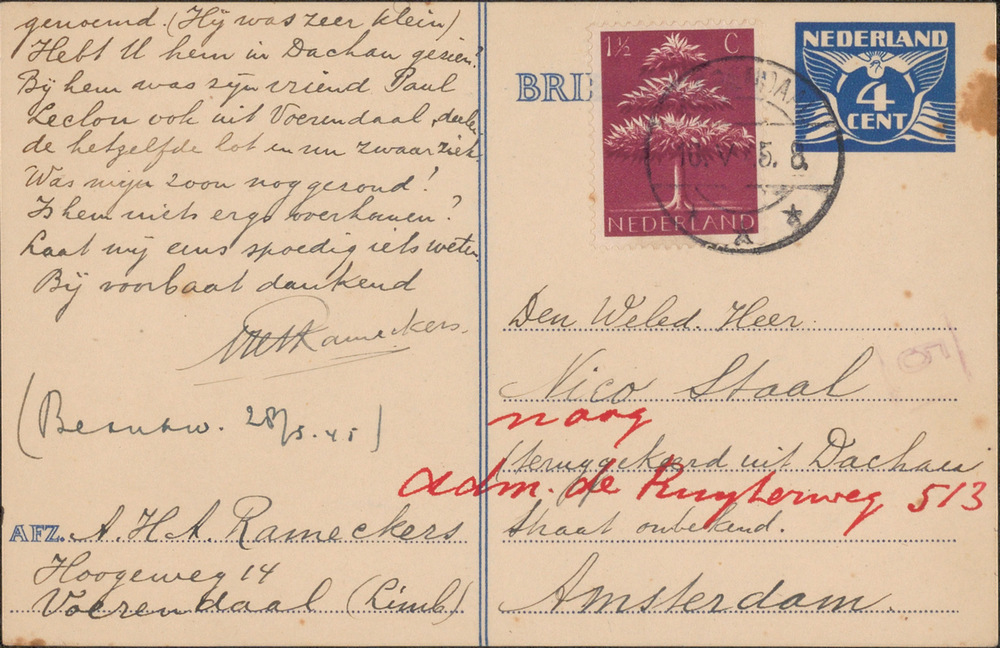 genoemd. (Hij was zeer klein)
Hebt U hem in Dachau gezien?
Bij hem was zijn vriend Paul
Leclou ook uit Voerendaal, deelen
de hetzelfde lot en nu zwaar ziek.
Was mijn zoon nog gezond?
Is hem niets ergs overkomen?
Laat mij eens spoedig iets weten
Bij voorbaat dankend
Rameckers.
(Beantw. 28/5.45)
AFZ. A. H. A. Rameckers
Hoogeweg 14
Voerendaal (Limb)
BRI
1½ C
NEDERLAND
NEDERLAND
4
CENT
5. 8
Den Weled. Heer
Nico Staal
naar
(teruggekeerd uit Dachau
adm. de Ruyterweg 513
Straat onbekend.
Amsterdam.